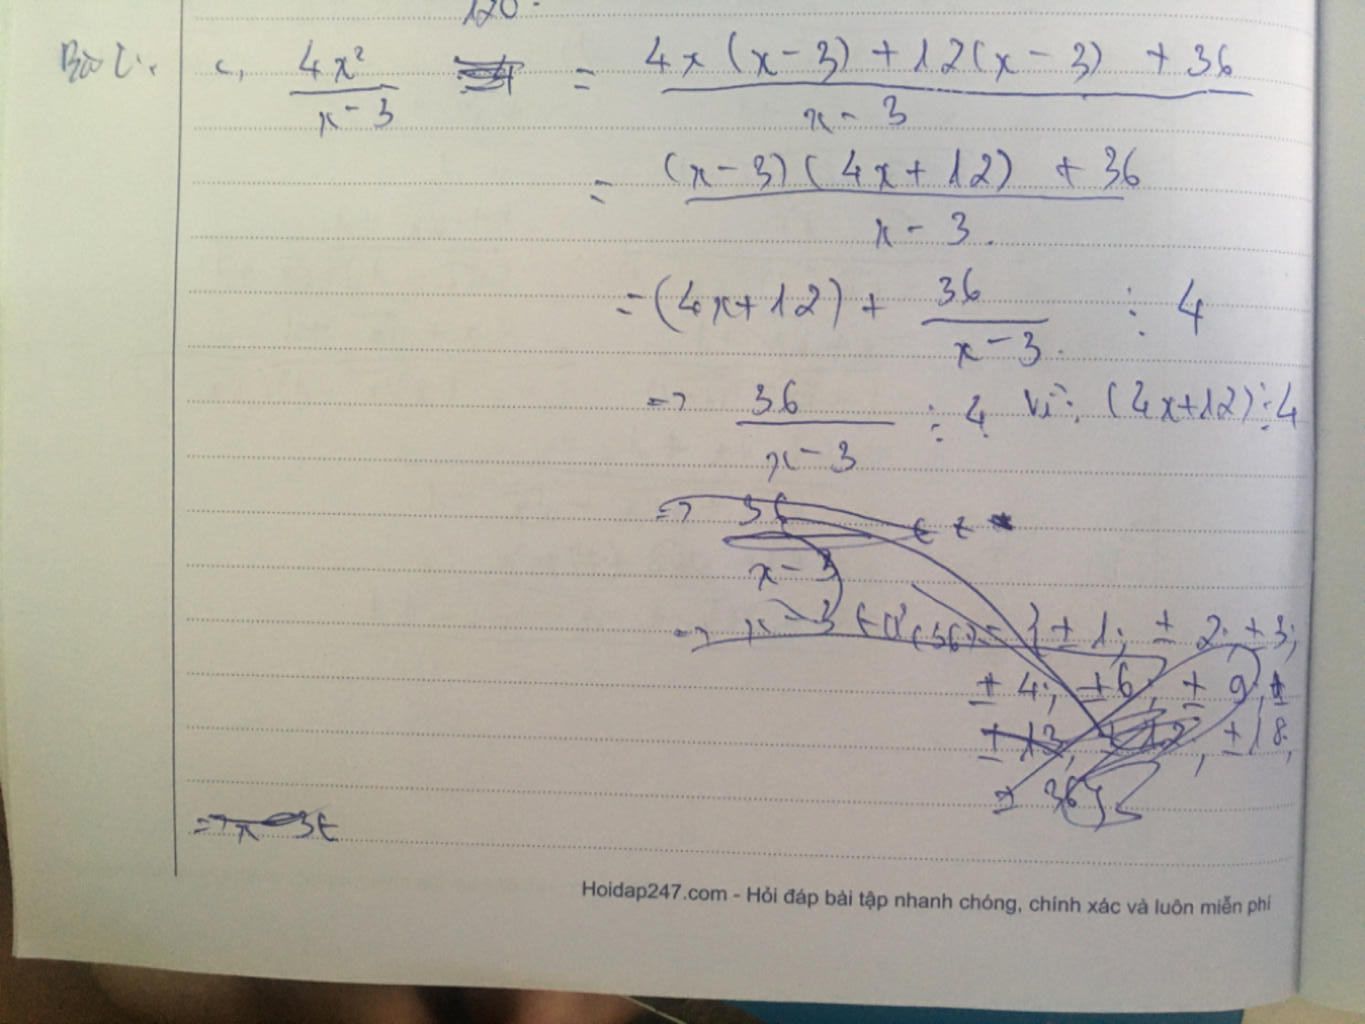 120.
Bài 1: c, 4x² / x-3 = 4x(x-3)+12(x-3) +36 / x-3
= (x-3)(4x+12) +36 / x-3.
=(4x+12)+ 36 / x-3. ⋮ 4
=> 36 / x-3 ⋮ 4 Vì: (4x+12)⋮4
=> 36 / x-3 ∈ Z
=> x-3 ∈ Ư(36)= {±1; ±2; ±3;
±4; ±6; ±9;
±13; ±12; ±18;
36}
=> x-3 ∈
Hoidap247.com - Hỏi đáp bài tập nhanh chóng, chính xác và luôn miễn phí